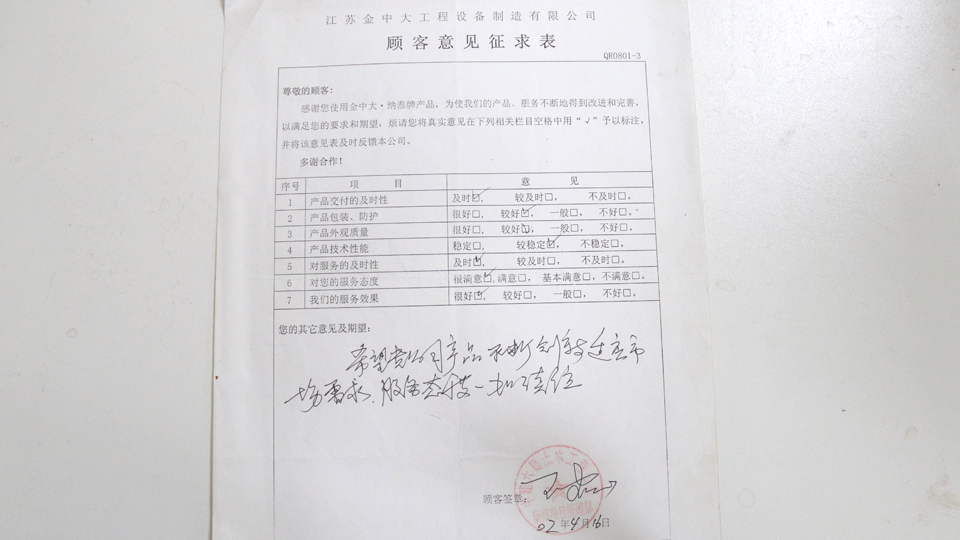 江苏金中大工程设备制造有限公司
顾客意见征求表
QR0801-3
尊敬的顾客:
感谢您使用金中大·纳泰牌产品，为使我们的产品、服务不断地得到改进和完善，
以满足您的要求和期望，烦请您将真实意见在下列相关栏目空格中用“√”予以标注，
并将该意见表及时反馈本公司。
多谢合作!
序号 项 目 意 见
1 产品交付的及时性 及时□， 较及时□， 不及时□。
2 产品包装、防护 很好□， 较好□， 一般□， 不好□。
3 产品外观质量 很好□， 较好□， 一般□， 不好□。
4 产品技术性能 稳定□， 较稳定□， 不稳定□。
5 对服务的及时性 及时□， 较及时□， 不及时□。
6 对您的服务态度 很满意□，满意□， 基本满意□，不满意□。
7 我们的服务效果 很好□， 较好□， 一般□， 不好□。
您的其它意见及期望:
希望贵公司产品不断创新适应市
场需求，服务态度一如
顾客签章:
02年4月16日